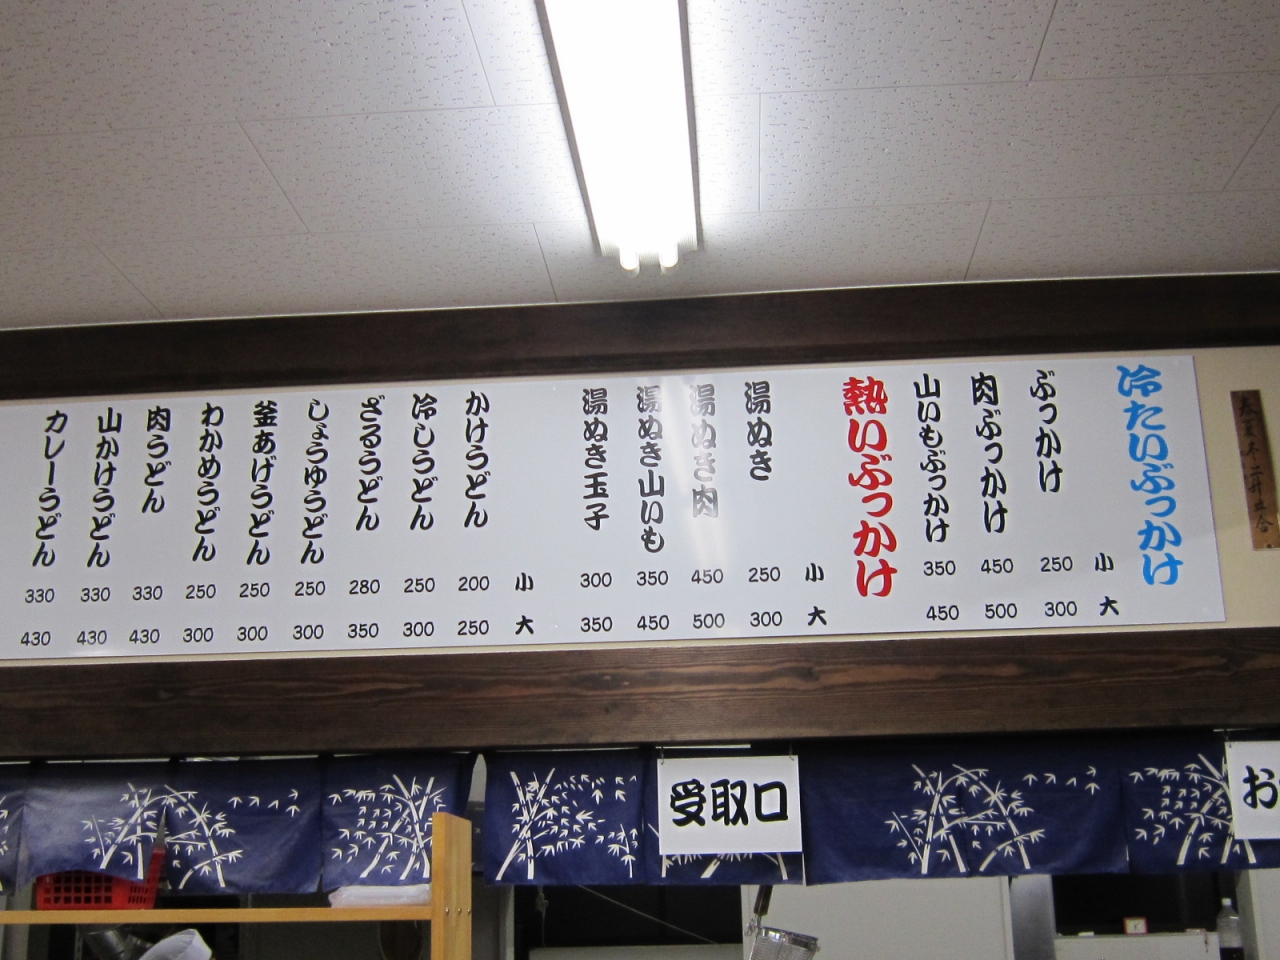 冷たいぶっかけ
小 大
ぶっかけ 250 300
肉ぶっかけ 450 500
山いもぶっかけ 350 450
熱いぶっかけ
小 大
湯ぬき 250 300
湯ぬき肉 450 500
湯ぬき山いも 350 450
湯ぬき玉子 300 350
小 大
かけうどん 200 250
冷しうどん 250 300
ざるうどん 280 350
しょうゆうどん 250 300
釜あげうどん 250 300
わかめうどん 250 300
肉うどん 330 430
山かけうどん 330 430
カレーうどん 330 430
受取口
お